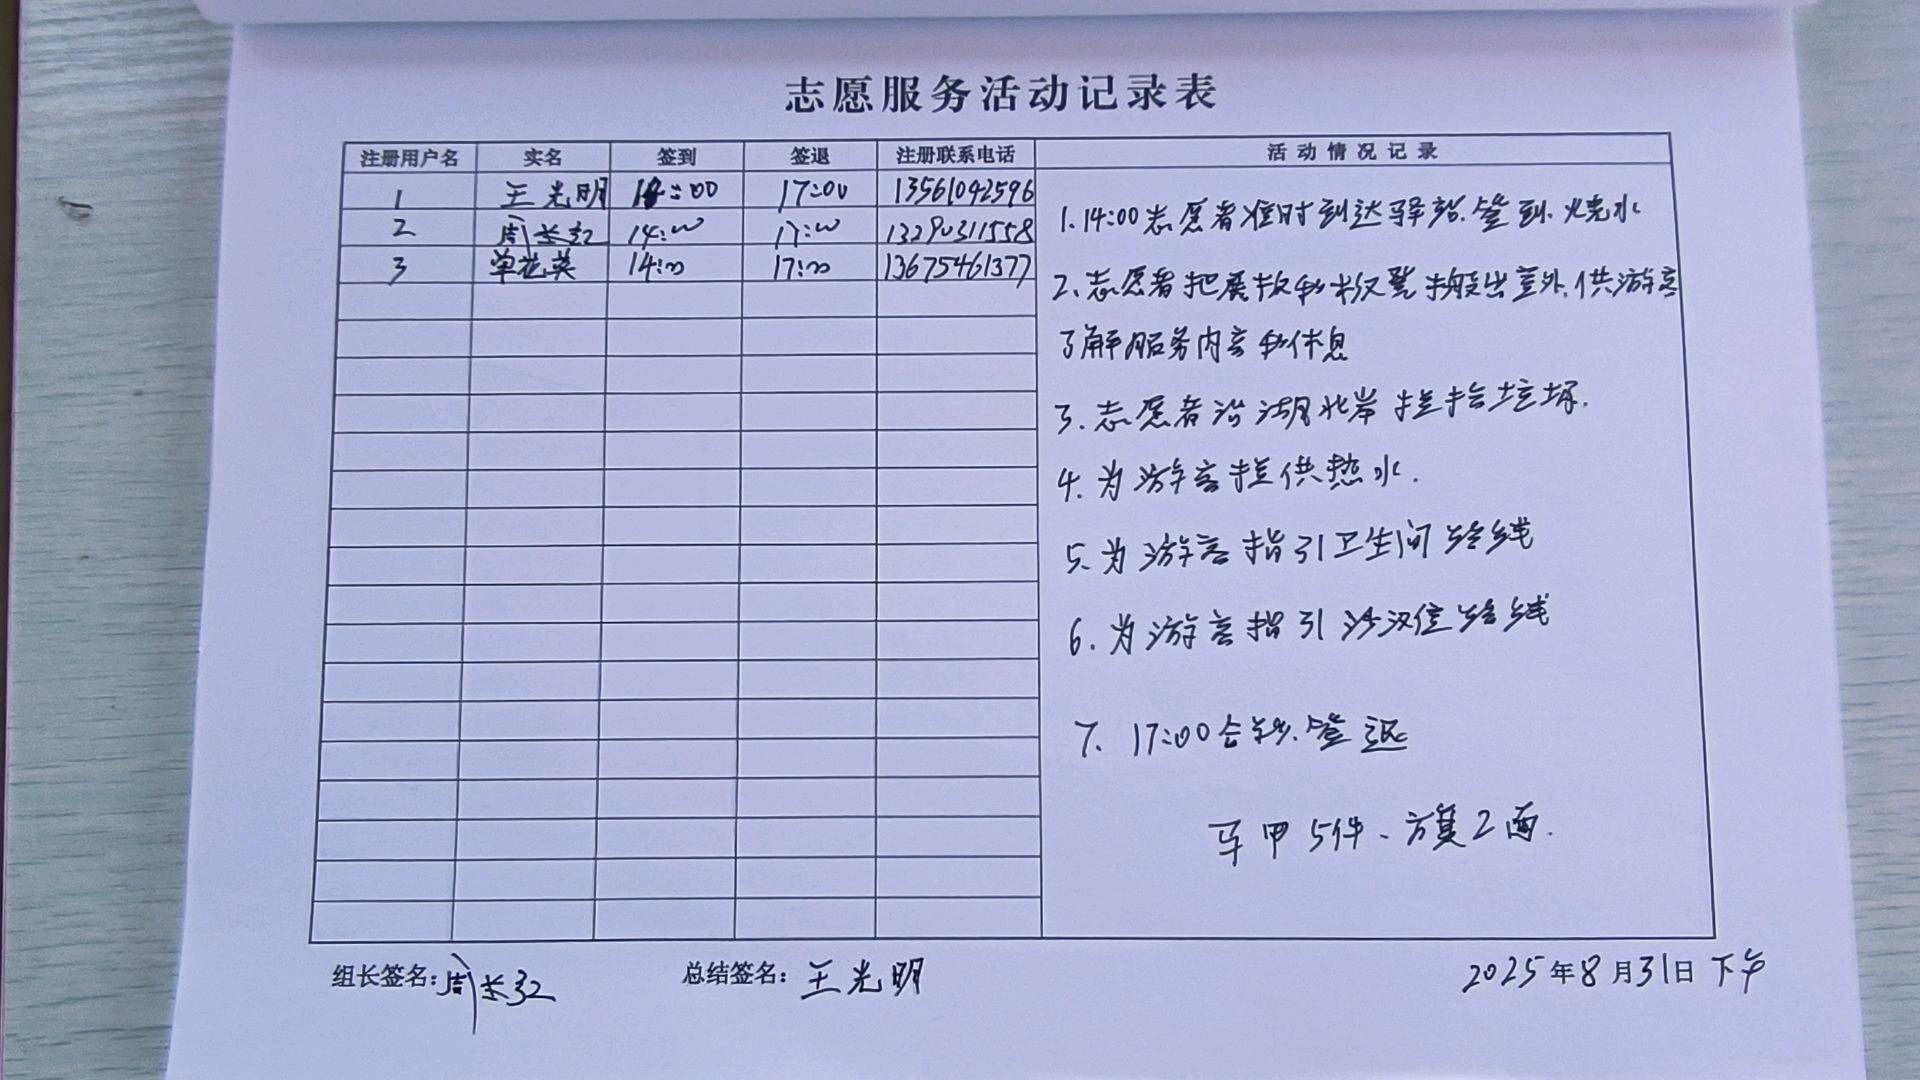 志愿服务活动记录表
注册用户名 实名 签到 签退 注册联系电话 活动情况记录
1 王光明 14:00 17:00 13561042596
2 周长征 14:00 17:00 13290311558
3 单花英 14:00 17:00 13675461377
1.14:00志愿者准时到达驿站.签到.烧水
2.志愿者把展板和板凳搬出室外.供游客
了解服务内容和休息
3.志愿者沿湖北岸捡拾垃圾.
4.为游客提供热水.
5.为游客指引卫生间路线
6.为游客指引 路线
7. 17:00合影.签退
马甲5件、旗2面.
组长签名: 总结签名:王光明 2025年8月31日下午